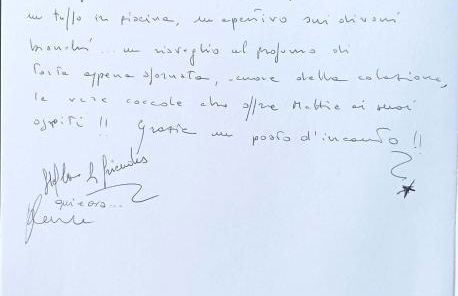 un tuffo in piscina, un aperitivo sui divani
bianchi... un risveglio al profumo di
torta appena sfornata, cuore della colazione,
le vere coccole che offre Mattia ai suoi
ospiti !! Grazie un posto d'incanto !!
& friends
qui e ora...